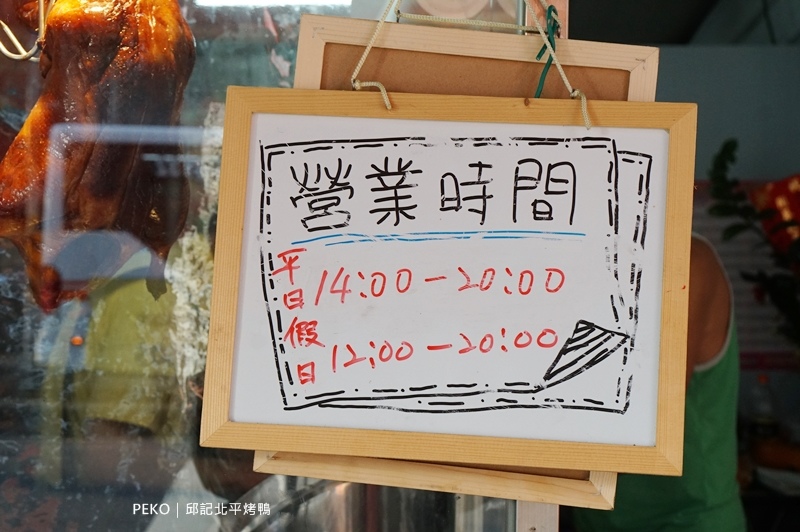 營業時間
平日 14:00－20:00
假日 12:00－20:00
PEKO｜邱記北平烤鴨